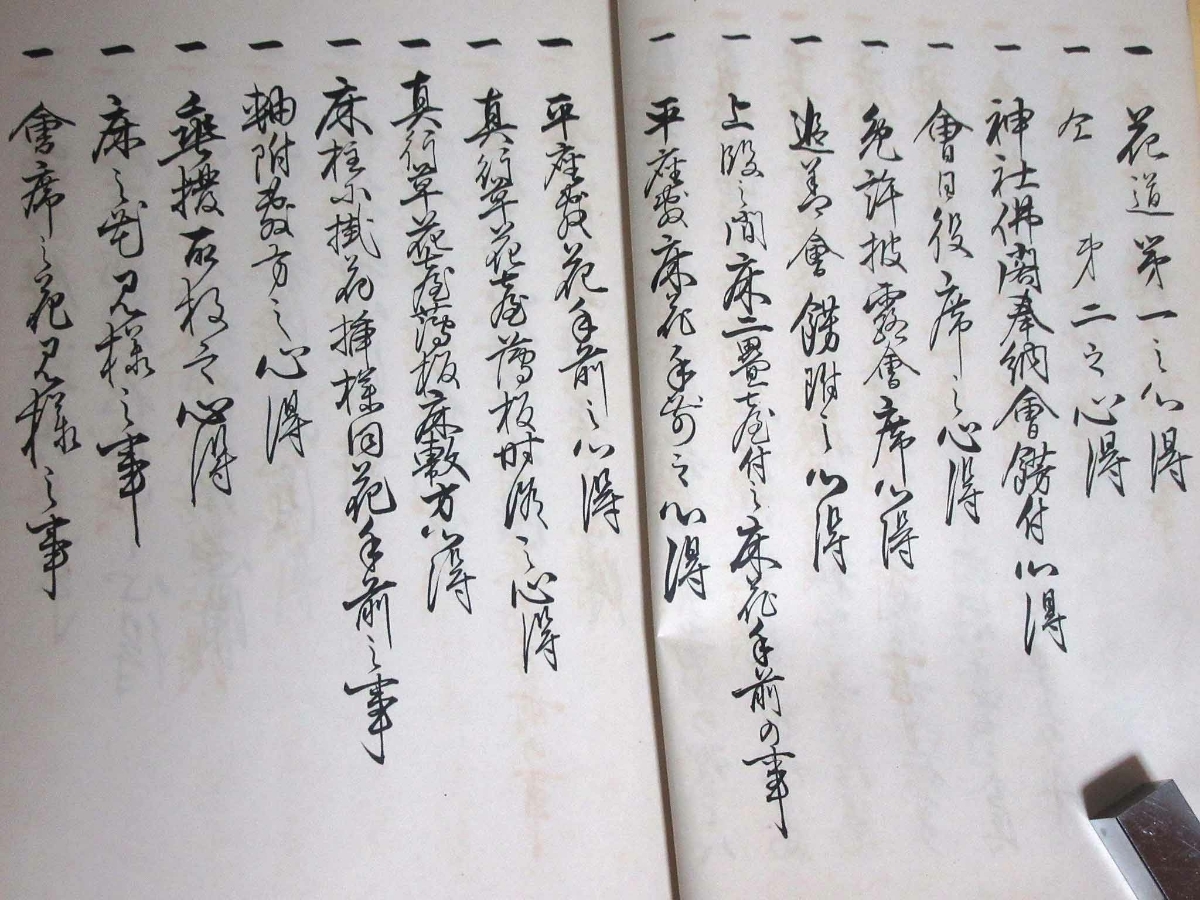 一 花道第一之心得
一 仝 第二之心得
一 神社佛閣奉納會餝付心得
一 會日役席之心得
一 免許披露會席心得
一 追善會餝附之心得
一 上段之間床二畳 付之床花手前の事
一 平座敷床花手前之心得
一 平座敷花手前之心得
一 真行草花 薄板時 之心得
一 真行草花 薄板床敷方心得
一 床柱小掛花挿様同花手前之事
一 軸附敷方之心得
一 垂撥 板之心得
一 床之花見様之事
一 會席之花見様之事